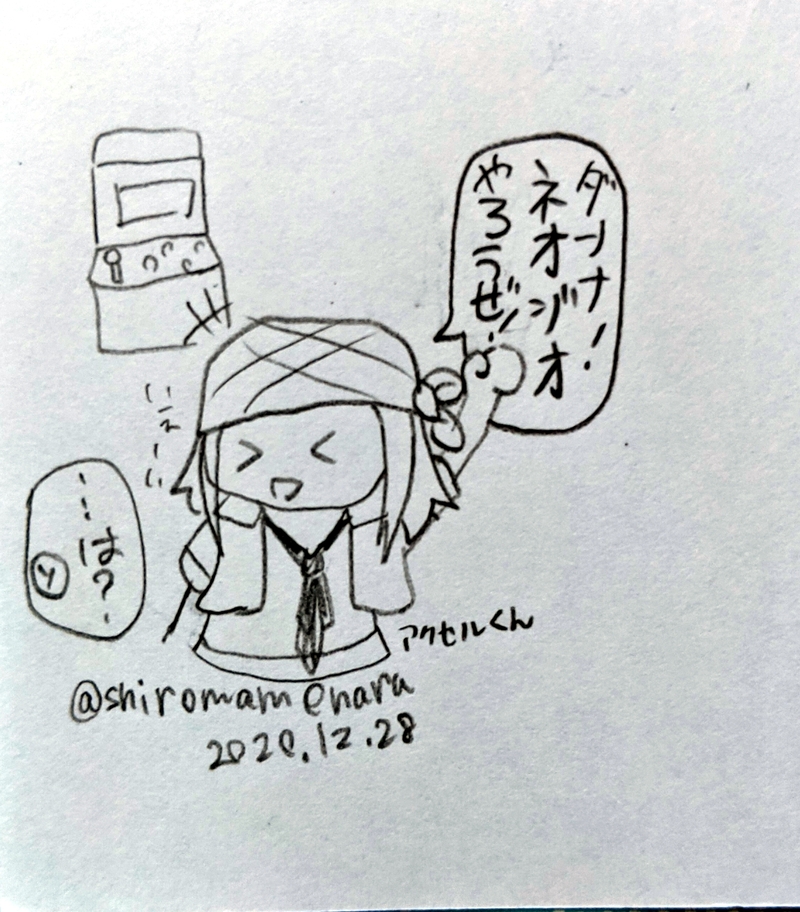 ダンナ!
ネオジオ
やろうぜ!
いぇーい
……は?
ソ
アクセルくん
@shiromamenara
2020.12.28